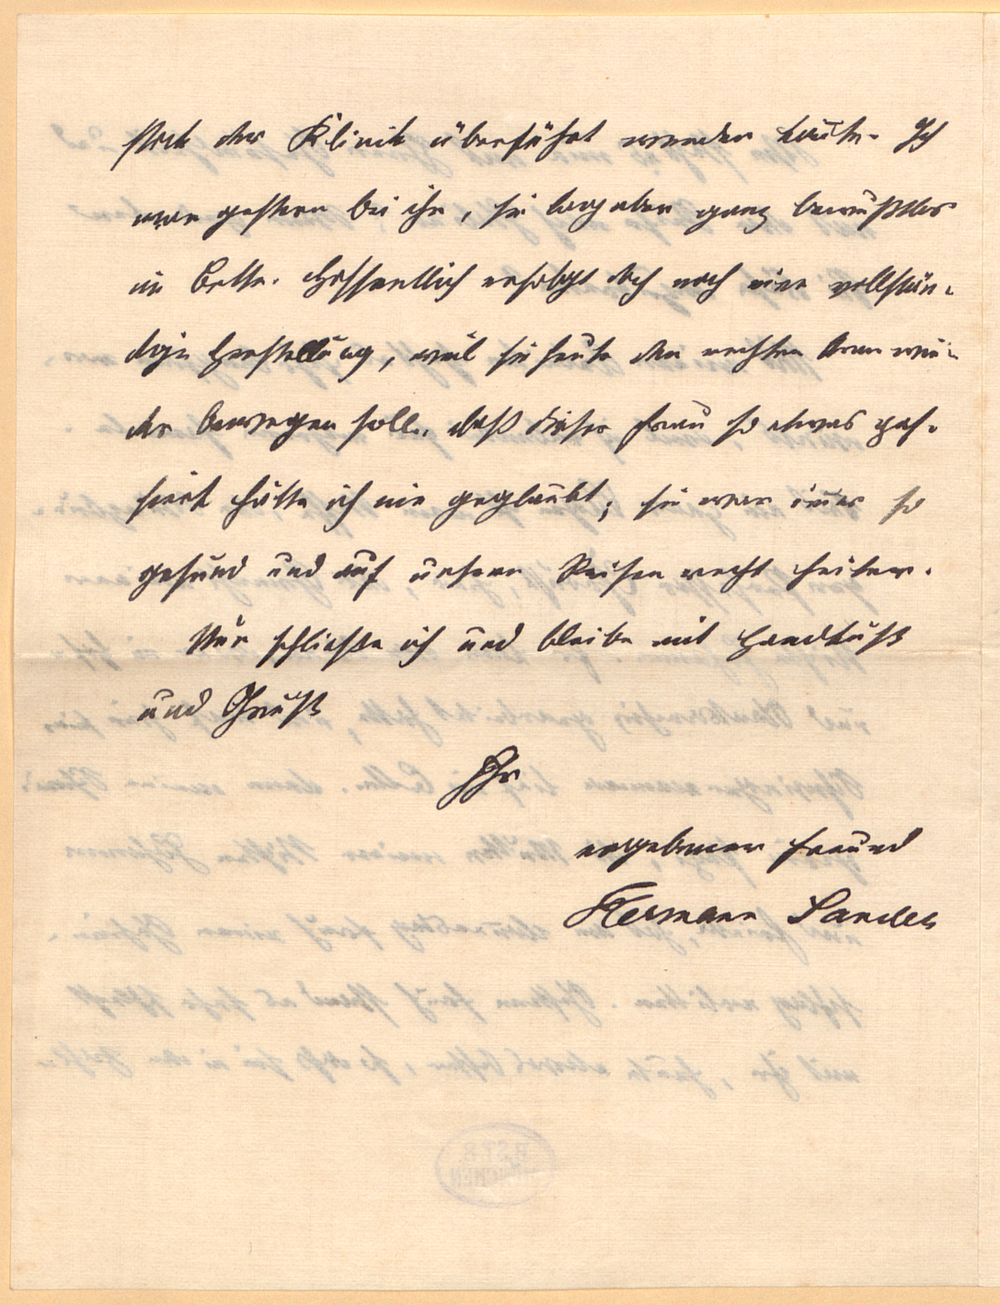 stock der Klinik überführt werden konnte. Ich
war gestern bei ihr, sie lag aber ganz bewußtlos
im Bette. Hoffentlich erfolgt doch noch eine vollstän-
dige Herstellung, weil sie heute den rechten Arm wie-
der bewegen soll. Daß dieser Frau so etwas pas-
siert hätte ich nie geglaubt; sie war im̅er so
gesund und auf unseren Reisen recht heiter.
Nun schließe ich und bleibe mit Handkuß
und Gruß
Ihr
ergebener Freund
Hermann Sander